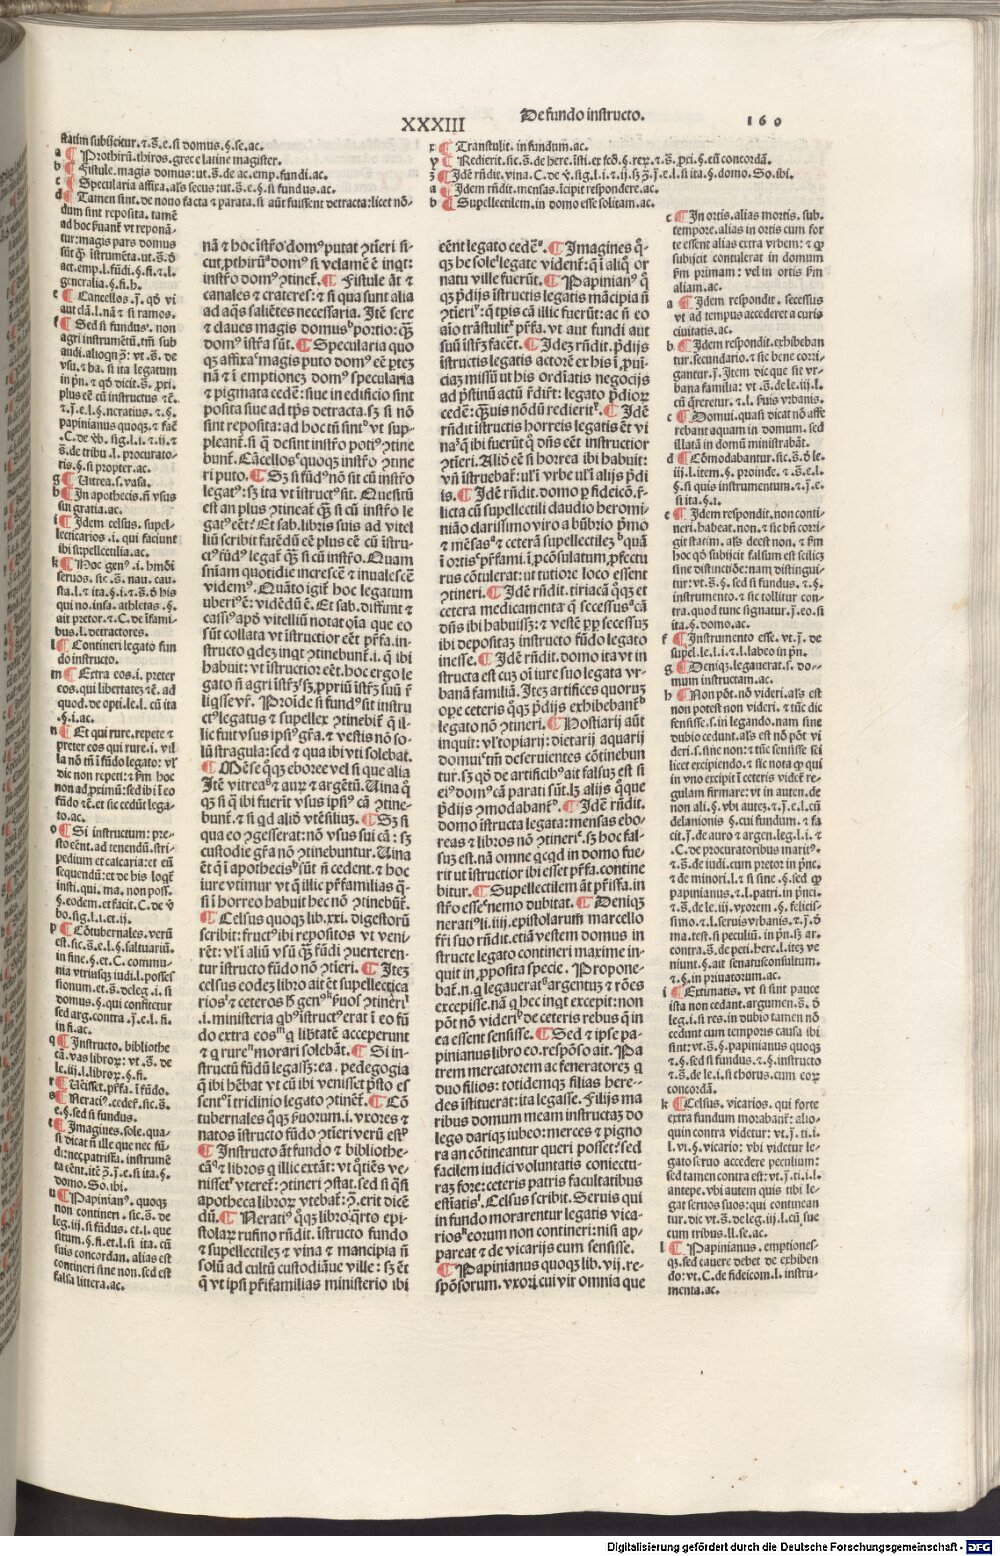 XXXIII
De fundo instructo.
160
statim subijcitur. ⁊.s̄.e.si domus.§.se.ac.
a ¶ Prothirū.thiros.grece latine magister.
b ¶ Fistule.magis domus: ut.s̄.de ac.emp.fundi.ac.
c ¶ Specularia affixa.als secus: ut.s̄.e.§.si fundus.ac.
d ¶ Tamen sint.de nouo facta ⁊ parata.si aūt fuissent detracta: licet nō-
dum sint reposita. tamē
ad hoc fuant vt reponā-
tur: magis pars domus
generalia.§.fi.h.
e ¶ Cancellos.
aut clā.l.nā ⁊ si ramos.
f ¶ Sed si fundus. non
agri instrumētū.tm̄ sub
plus eē cū instructus
papinianus quoqꝫ. ⁊ faē
.s̄.de tribu.l.procurato-
ris.§.si propter.ac.
g ¶ Uitrea.s.vasa.
h ¶ In apothecis.n̄ vsus
sui gratia.ac.
i ¶ Idem celsus. supel-
lecticarios .i. qui faciunt
ibi supellectilia.ac.
k ¶ Hoc genꝰ.i. hmōi
seruos. sic .s̄. nau. cau-
sta.l.⁊ ita.§.i.⁊.s̄.ō his
qui no.insa.athletas .§.
ait pretor.⁊.C. de īfami-
bus.l.detractores.
l ¶ Contineri legato fun
do instructo.
m ¶ Extra eos.i. preter
eos.qui libertateꝫ ⁊ē. ad
quod.de opti.le.l. cū ita
.§.i.ac.
n ¶ Et qui rure.repete ⁊
preter eos qui rure.i. vil
la nō tm̄ ī fūdo legato: vl̄
dic non repeti: ⁊ km̄ hoc
non ad proximū: sed ibi ī eo
fūdo ⁊ē.et sic cedūt lega-
to.ac.
o ¶ Si instructum: pre-
sto eēnt.ad tenendū.stri-
pedium et calcaria: et eū
sequendū: et de his loqt̄
insti.qui.ma.non poss.
§.eodem.et facit.C. de v̄
bo.sig.l.i.et.ij.
p ¶ Cōtubernales. verū
est.sic.s̄.e.l.§.saltuariū.
in fine.§.et.C. commu-
nia vtriusqꝫ iudi.l.posses
sionum.et.s̄.deleg.i. si
domus.§.qui confitetur
sed arg.contra .j̄.e.l. fi.
in fi.ac.
q ¶ Instructo. bibliothe
cā.vas librorꝫ: vt .s̄. de
le.iij.l.libroꝝ.§.fi.
r ¶ Uēisset.pr̄fa.ī fūdo.
s ¶ Neraciꝰ.
e.§.sed si fundus.
t ¶ Imagines. sole. qua-
si dicat n̄ ille que nec fū-
di: nec patrisfa. instrumē
ta eēnt.
domo.So.ibi.
u ¶ Papinianꝰ. quoqꝫ
non contineri .sic.s̄. de
leg.iij.si fūdus. et.l. que
situm.§.fi.et.l.si ita. cū
suis concordan. alias est
contineri sine non.sed est
falsa littera.ac.
nā ⁊ hoc īstrō domꝰ putat ꝯtīeri si-
cut prothirū domꝰ si vclamē ē inqt:
instrō domꝰ ꝯtinet. ¶ Fistule āt ⁊
canales ⁊ crateres: ⁊ si qua sunt alia
ad aqꝫ saliētes necessaria. Itē sere
⁊ claues magis domus portio: qꝫ
domꝰ īstra sūt. ¶ Specularia quo
qꝫ affixa magis puto domꝰ eē partes
nā ⁊ ī emptioneꝫ domꝰ specularia
⁊ pigmata cedē: siue in edificio sint
posita siue ad tps detracta. sꝫ si nō
sint reposita: ad hoc tn̄ sint vt sup-
pleant. si q̄ desint instrō potiꝰ ꝯtine
bunt. Cācellos quoqꝫ instrō ꝯtine
ri puto. ¶ Sꝫ si fūdꝰ nō sit cū instrō
legatꝰ: sꝫ ita vt instructꝰ sit. Quesitū
est an plus ꝯtineat qꝫ si cū instrō le
gatꝰ eēt? Et sab. libris suis ad vitel
liū scribit fatēdū eē plus eē cū īstru-
ctꝰ fūdꝰ legat̄ qꝫ si cū instrō. Quam
snīam quotidie increscē ⁊ inualescē
videmꝰ. Quāto igit̄ hoc legatum
uberiꝰ ē: vidēdū ē. Et sab. diffinit ⁊
cassiꝰ apō vitelliū notat oīa que eo
sūt collata vt īstructior eēt pr̄fa. in-
structo qdeꝫ inqt ꝯtinebunt̄.i. q̄ ibi
habuit: vt īstructior eēt. hoc ergo le
gato n̄ agri īstrꝫ: sꝫ propriū īstrꝫ suū r̄
liqisse vr̄. Proīde si fundꝰ sit instru
ctꝰ legatus ⁊ supellex ꝯtinebit̄ q̄ il-
lic fuit vsus ipsiꝰ gr̄a. ⁊ vestis nō so-
lū stragula: sed ⁊ qua ibi vti solebat.
¶ Mēse qꝫ eboree vel si que alia
Itē vitrea ⁊ aurꝫ ⁊ argētū. Uina qꝫ
qꝫ si q̄ ibi fuerit vsus ipsiꝰ cā ꝯtine-
bunt̄. ⁊ si qd aliō vtēsiliuꝫ. ¶ Sꝫ si
qua eo ꝯgesserat: nō vsus sui cā: sꝫ
custodie gr̄a nō ꝯtinebuntur. Uina
ēt q̄ ī apothecis sūt n̄ cedent. ⁊ hoc
iure vtimur vt q̄ illic pr̄familias q̄-
si ī horreo habuit hec nō ꝯtinebūt̄.
¶ Celsus quoqꝫ lib.xxi. digestorū
scribit: fructꝰ ibi repositos vt veni-
rēt: vl̄ ī aliū vsū qꝫ fūdi ꝯuerteren-
tur īstructo fūdo nō ꝯtīeri. ¶ Iteꝫ
celsus eodeꝫ libro ait ēt supellectica
rios ⁊ ceteros hꝰ genꝰ ẜuos ꝯtineri
.i. ministeria qbꝰ īstructꝰ erat ī eo fū
do extra eos q̄ lib̄tatē acceperunt
⁊ q̄ rure morari solebāt. ¶ Si in-
structū fūdū legassꝫ: ea. pedegogia
q̄ ibi hēbat vt cū ibi venisset pr̄sto ei
sent ī triclinio legato ꝯtinēt̄. ¶ Cō
tubernales qꝫ ẜuorum.i. vxores ⁊
natos īstructo fūdo ꝯtīeri verū est
¶ Instructo āt fundo ⁊ bibliothe-
cā ⁊ libros q̄ illic extāt: vt qtiēs ve-
nisset vteret̄: ꝯtineri ꝯstat. sed si q̄si
apotheca librorꝫ vtebat̄: ꝯ. erit dicē
dū. ¶ Neratiꝰ qꝫ libro qrto epi-
stolaꝝ rufino rn̄dit. īstructo fundo
⁊ supellectileꝫ ⁊ vina ⁊ mancipia n̄
solū ad cultū custodiāue ville: sꝫ ēt
q̄ vt ipsi pr̄ifamilias ministerio ibi
x ¶ Transtulit. in fundum.ac.
y ¶ Redierit.sic.s̄.de here.īsti.ex fcō.§.reꝝ.⁊.s̄.pxi.§.eū concordā.
z ¶ Idē rn̄dit.vina.C.de v̄.sig.l.i.⁊.ij.sꝫ ꝫ.j̄.e.l.si ita.§.domo.So.ibi.
a ¶ Idem rn̄dit. mensas.īcipit respondere.ac.
b ¶ Supellectilem.in domo esse solitam.ac.
eēnt legato cedē. ¶ Imagines q̄-
qꝫ he sole legate vident̄: q̄ ī aliq̄ or
natu ville fuerūt. ¶ Papinianꝰ q̄
qꝫ pr̄dijs īstructis legatis mācipia n̄
ꝯtieri: q̄ tp̄is cā illic fuerūt: ac n̄ eo
aīo trāstulit pr̄fa. vt aut fundi aut
suū īstrꝫ facēt. ¶ Ideꝫ rn̄dit. pr̄dijs
īstructis legatis actorē ex his ī prouī-
ciaꝫ missū ut his ordīatis negocijs
ad pristinū actū r̄dirt̄: legato pr̄dioꝝ
cedē: qꝫuis nōdū redierit. ¶ Idē
rn̄dit īstructis horreis legatis ēt vi
na qꝫ ibi fuerūt q̄ dn̄s eēt instructior
ꝯtieri. Aliō eē si horrea ibi habuit:
vn̄ īstruebat̄: ul̄ ī vrbe ul̄ ī alijs pr̄di
is. ¶ Idē rn̄dit. domo p fideicō. r̄-
licta cū supellectili claudio heromi-
niāo clarissimo viro a būbrio pr̄mo
⁊ mēsas ⁊ ceterā supellectileꝫ quā
ī ortis pr̄fami. ī pcōsulatum profectu
rus cōtulerat: ut tutiore loco essent
ꝯtineri. ¶ Idē rn̄dit. tiriacā qꝫ et
cetera medicamenta q̄ secessus cā
dn̄s ibi habuissꝫ: ⁊ vestē pp secessuꝫ
ibi depositaꝫ instructo fūdo legato
inesse. ¶ Idē rn̄dit. domo ita vt in
structa est cuꝫ oī iure suo legata vr-
banā familiā. Iteꝫ artifices quoruꝫ
ope ceteris qꝫ pr̄dijs exhibebant̄
legato nō ꝯtineri. ¶ Hostiarij aūt
inquit: vl̄ topiarij: dietarij aquarij
domui tm̄ deseruientes cōtinebun
tur. sꝫ qō de artificibꝰ ait falsuꝫ est si
eiꝰ domꝰ cā parati sūt. lꝫ alijs qꝫ
pr̄dijs ꝯmodabant̄. ¶ Idē rn̄dit.
domo īstructa legata: mensas ebo-
reas ⁊ libros nō ꝯtineri. sꝫ hoc fal-
suꝫ est. nā omne qcqd in domo fue-
rit ut īstructior ibi esset pr̄fa. contine
bitur. ¶ Supellectilem āt pr̄isfa. in
strō esse nemo dubitat. ¶ Deniqꝫ
neratiꝰ li.iiij. epistolarum marcello
fr̄i suo rn̄dit. etiā vestem domus in
structe legato contineri maxime in-
quit in proposita specie. Propone-
bat̄. n. q̄ legauerat argentuꝫ ⁊ rōes
excepisse. nā q̄ hec inqt excepit: non
pōt nō videri de ceteris rebus q̄ in
ea essent sensisse. ¶ Sed ⁊ ipse pa-
pinianus libro eo. respōso ait. Pa
trem mercatorem ac feneratoreꝫ q̄
duo filios: totidemqꝫ filias here--
des īstituerat: ita legasse. Filijs ma
ribus domum meam instructaꝫ do
lego dariqꝫ iubeo: merces ⁊ pigno
ra an cōtineantur queri posset: sed
facilem iudici voluntatis coniectu-
raꝫ fore: ceteris patris facultatibus
estiatis. Celsus scribit. Seruis qui
in fundo morarentur legatis vica-
rios eorum non contineri: nisi ap-
pareat ⁊ de vicarijs eum sensisse.
¶ Papinianus quoqꝫ lib.vij.re-
spōsorum. vxori cui vir omnia que
c ¶ In ortis.alias mortis. sub.
tempore.alias in ortis cum for
te essent alias extra vrbem: ⁊ qꝫ
subijcit contulerat in domum
km̄ primam: vel in ortis km̄
aliam.ac.
a ¶ Idem respondit. secessus
vt ad tempus accederet a curis
ciuitatis.ac.
b ¶ Idem respondit.exhibeban
tur.secundario.⁊ sic bene corri
gantur.j̄. Item dic que sit vr-
bana familia: vt .s̄.de le.iij.l.
cū q̄reretur. ⁊.l. ẜuis vrbanis.
c ¶ Domui.quasi dicat nō affe
rebant aquam in domum. sed
illatā in domū ministrabāt.
d ¶ Cōmodabantur.sic.s̄.ō le.
iij.l.item.§. proinde. ⁊.s̄.e.l.
§.si quis instrumentum.⁊.j̄.e.
si ita.§.i.
e ¶ Idem respondit.non conti-
neri.habeat.non.⁊ sic bn̄ corri
git statim. als deest non. ⁊ km̄
hoc qō subijcit falsum est scilicꝫ
sine distinctiōe: nam distingui-
tur: vt.s̄.§.sed si fundus.⁊.§.
instrumento.⁊ sic tollitur con-
tra.quod tunc signatur.j̄.eo.si
ita.§.domo.ac.
f ¶ Instrumento esse.vt.j̄. de
supel.le.l.i.⁊.l.labeo in pn̄.
g ¶ Deniqꝫ.legauerat.s. do--
mum instructam.ac.
h ¶ Non pōt.nō videri.als est
non potest non videri .⁊ tūc dic
sensisse.s.in legando.nam sine
dubio cedunt.als est nō pōt vi
deri.s.sine non: ⁊ tūc sensisse sci
licet excipiendo.⁊ sic nota qꝫ qui
in vno excipit ī ceteris videt̄ re-
gulam firmare: vt in auten.de
non ali.§.vbi auteꝫ.⁊.j̄.e.l.cū
delanionis §.cui fundum.⁊ fa
cit.j̄.de auro ⁊ argen.leg.l.i. ⁊
.C.de procuratoribus maritꝰ
⁊.s̄.de iudi.cum pretor in pn̄c.
⁊ de minori.l.⁊ si sine .§.sed qꝫ
papinianus.⁊.l.patri.in pn̄ci.
⁊.s̄.de le.iij.vxorem .§. felicis-
simo.⁊.l.seruis vrbanis.⁊.j̄.ō
ma.test.si peculiū.in pn̄.sꝫ ar.
contra.s̄.de peti.here.l.iteꝫ ve
niunt.§.ait senatusconsultum.
⁊.§.in priuatorum.ac.
i ¶ Extimatis. vt si sint pauce
ista non cedant.argumen.s̄. ō
leg.i.si res.in dubio tamen nō
cedunt cum temporis causa ibi
sint: vt.s̄.§.papinianus quoqꝫ
⁊.§.sed si fundus.⁊.§.instructo
⁊.s̄.de le.i.si chorus.cum eoꝝ
concordā.
k ¶ Celsus. vicarios. qui forte
extra fundum morabant̄: alio-
quin contra videtur: vt.j̄.ti.i.
l.vi.§.vicario: vbi videtur le-
gato seruo accedere peculium:
sed tamen contra est: vt.j̄.ti.i.l.
antepe.vbi autem quis tibi le-
gat seruos suos: qui continean
tur.dic vt.s̄.de leg.iij.l.cū sue
cum tribus.ll.se.ac.
l ¶ Papinianus . emptiones-
qꝫ.sed cauere debet de exhiben
do: vt.C.de fideicom.l. instru-
menta.ac.
Digitalisierung gefördert durch die Deutsche Forschungsgemeinschaft - DFG